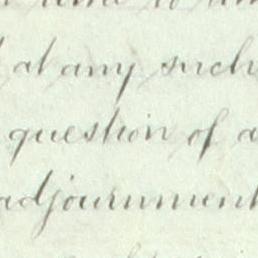 at any such
question of a
adjournment